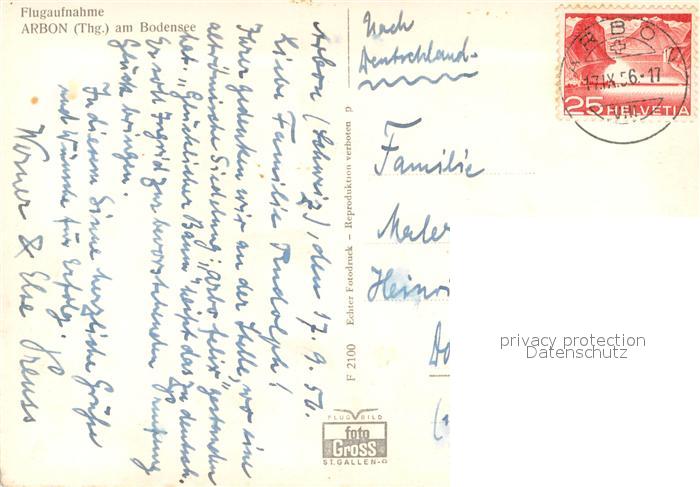 Flugaufnahme
ARBON (Thg.) am Bodensee
Arbon (Schweiz), den 17. 9. 56.
Liebe Familie Rudolph!
Ihrer gedenken wir an der Stelle, wo eine
altrömische Siedelung „arbo felix" gestanden
hat. „Glücklicher Baum" heißt das zu deutsch.
Er soll Ingrid zur bevorstehenden Prüfung
Glück bringen.
In diesem Sinne herzliche Grüße
und Wünsche für Erfolg.
Werner & Else Preuss
F 2100 Echter Fotodruck – Reproduktion verboten p
FLUGBILD
foto
Gross
ST.GALLEN
Nach
Deutschland
Familie
Maler
Heinri
ARBON
17.IX.56.-17
25 HELVETIA
privacy protection
Datenschutz